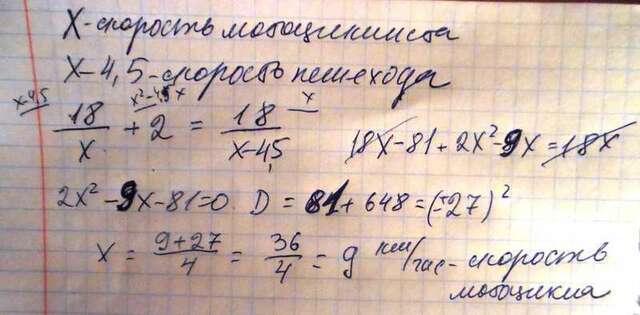 X - скорость мотоциклиста
X - 4,5 - скорость пешехода
x-4,5 x²-4,5x x
18/x + 2 = 18/x-4,5 18x - 81 + 2x² - 9x = 18x
2x² - 9x - 81 = 0 D = 81 + 648 = (±27)²
x = 9+27/4 = 36/4 = 9 км/час - скорость
мотоцикла